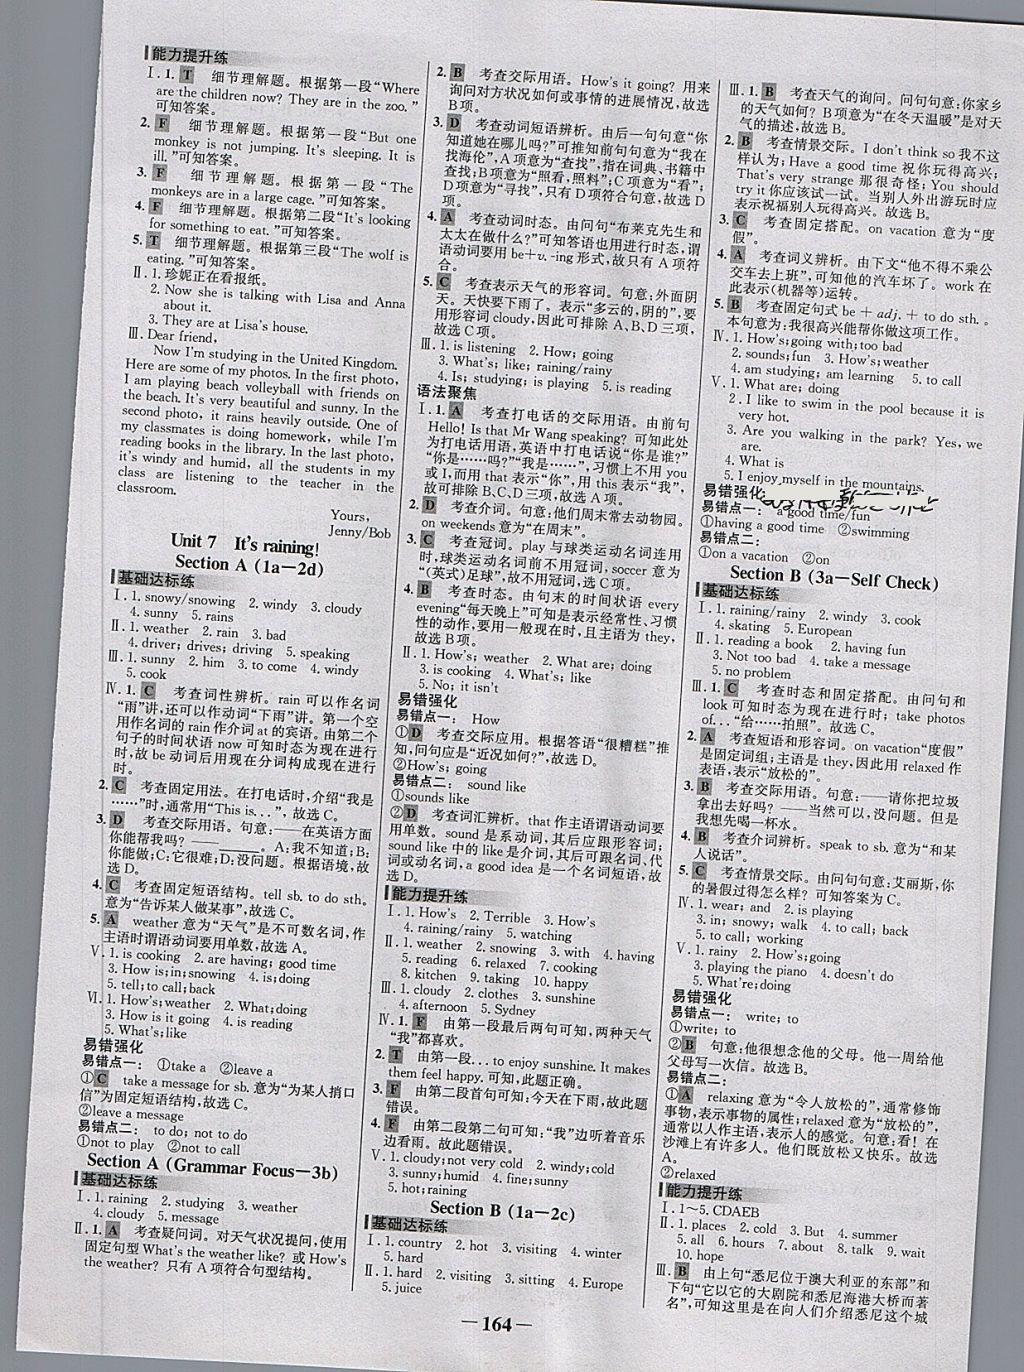 能力提升练
Ⅰ. 1. T 细节理解题。根据第一段“Where
are the children now? They are in the zoo. ”
可知答案。
2. F 细节理解题。根据第一段“But one
monkey is not jumping. It's sleeping. It is
ill. ”可知答案。
3. F 细节理解题。根据第一段“The
monkeys are in a large cage. ”可知答案。
4. F 细节理解题。根据第二段“It's looking
for something to eat. ”可知答案。
5. T 细节理解题。根据第三段“The wolf is
eating. ”可知答案。
Ⅱ. 1. 珍妮正在看报纸。
2. Now she is talking with Lisa and Anna
about it.
3. They are at Lisa's house.
Ⅲ. Dear friend,
Now I'm studying in the United Kingdom.
Here are some of my photos. In the first photo,
I am playing beach volleyball with friends on
the beach. It's very beautiful and sunny. In the
second photo, it rains heavily outside. One of
my classmates is doing homework, while I'm
reading books in the library. In the last photo,
it's windy and humid, all the students in my
class are listening to the teacher in the
classroom.
Yours,
Jenny/Bob
Unit 7 It's raining!
Section A (1a—2d)
基础达标练
Ⅰ. 1. snowy/snowing 2. windy 3. cloudy
4. sunny 5. rains
Ⅱ. 1. weather 2. rain 3. bad
4. driver; drives; driving 5. speaking
Ⅲ. 1. sunny 2. him 3. to come 4. windy
5. cook
Ⅳ. 1. C 考查词性辨析。rain 可以作名词
“雨”讲,还可以作动词“下雨”讲。第一个空
用作名词的 rain 作介词 at 的宾语。由第二个
句子的时间状语 now 可知时态为现在进行
时,故 be 动词后用现在分词构成现在进行
时。
2. C 考查固定用法。在打电话时,介绍“我是
……”时,通常用“This is. . . ”,故选 C。
3. D 考查交际用语。句意:——在英语方面
你能帮我吗? ——______。A:我不知道;B:
你能做;C:它很难;D:没问题。根据语境,故
选 D。
4. C 考查固定短语结构。tell sb. to do sth.
意为“告诉某人做某事”,故选 C。
5. A weather 意为“天气”是不可数名词,作
主语时谓语动词要用单数,故选 A。
Ⅴ. 1. is cooking 2. are having; good time
3. How is;in;snowing 4. is;doing
5. tell;to call;back
Ⅵ. 1. How's;weather 2. What;doing
3. How is it going 4. is reading
5. What's;like
易错强化
易错点一: ①take a ②leave a
①C take a message for sb. 意为“为某人捎口
信”为固定短语结构,故选 C。
②leave a message
易错点二: to do; not to do
①not to play ②not to call
Section A (Grammar Focus—3b)
基础达标练
Ⅰ. 1. raining 2. studying 3. weather
4. cloudy 5. message
Ⅱ. 1. A 考查疑问词。对天气状况提问,使用
固定句型 What's the weather like? 或 How's
the weather? 只有 A 项符合句型结构。
2. B 考查交际用语。How's it going? 用来
询问对方状况如何或事情的进展情况,故选
B 项。
3. D 考查动词短语辨析。由后一句句意“你
知道她在哪儿吗?”可推知前句句意为“我在
找海伦”,A 项意为“查找”,指在词典、书籍中
查找;B 项意为“照看,照料”;C 项意为“看”;
D 项意为“寻找”,只有 D 项符合句意,故选 D
项。
4. A 考查动词时态。由问句“布莱克先生和
太太在做什么?”可知答语也用进行时态,谓
语动词要用 be+v. -ing 形式,故只有 A 项符
合。
5. C 考查表示天气的形容词。句意:外面阴
天。天快要下雨了。表示“多云的,阴的”,要
用形容词 cloudy,因此可排除 A、B、D 三项,
故选 C 项。
Ⅲ. 1. is listening 2. How; going
3. What's; like; raining/rainy
4. Is; studying; is playing 5. is reading
语法聚焦
Ⅰ. 1. A 考查打电话的交际用语。由前句
Hello! Is that Mr Wang speaking? 可知此处
为打电话用语,英语中打电话说“你是谁?”
“你是……吗?”“我是……”,习惯上不用 you
或 I,而用 that 表示“你”,用 this 表示“我”,
故可排除 B、C、D 三项,故选 A 项。
2. D 考查介词。句意:他们周末常去动物园。
on weekends 意为“在周末”。
3. C 考查冠词。play 与球类运动名词连用
时,球类运动名词前不用冠词,soccer 意为
“(英式)足球”,故不用冠词,选 C 项。
4. B 考查时态。由句末的时间状语 every
evening“每天晚上”可知是表示经常性、习惯
性的动作,要用一般现在时,且主语为 they,
故选 B 项。
Ⅱ. 1. How's; weather 2. What are; doing
3. is cooking 4. What's; like
5. No; it isn't
易错强化
易错点一: How
①D 考查交际应用。根据答语“很糟糕”推
知,问句应是“近况如何?”,故选 D。
②How's; going
易错点二: sound like
①sounds like
②D 考查词汇辨析。that 作主语谓语动词要
用单数。sound 是系动词,其后应跟形容词;
sound like 中的 like 是介词,其后可跟名词、代
词或动名词,a good idea 是一个名词短语,故
选 D。
能力提升练
Ⅰ. 1. How's 2. Terrible 3. How's
4. raining/rainy 5. watching
Ⅱ. 1. weather 2. snowing 3. with 4. having
5. reading 6. relaxed 7. cooking
8. kitchen 9. taking 10. happy
Ⅲ. 1. cloudy 2. clothes 3. sunshine
4. afternoon 5. Sydney
Ⅳ. 1. F 由第一段最后两句可知,两种天气
“我”都喜欢。
2. T 由第一段. . . to enjoy sunshine. It makes
them feel happy. 可知,此题正确。
3. F 由第二段首句可知:今天在下雨,故此题
错误。
4. F 由第二段第二句可知:“我”边听着音乐
边看雨。故此题错误。
Ⅴ. 1. cloudy;not very cold 2. windy;cold
3. sunny;humid 4. fine;sunny
5. hot;raining
Section B (1a—2c)
基础达标练
Ⅰ. 1. country 2. hot 3. visiting 4. winter
5. hard
Ⅱ. 1. hard 2. visiting 3. sitting 4. Europe
5. juice
Ⅲ. 1. B 考查天气的询问。问句句意:你家乡
的天气如何? B 项意为“在冬天温暖”是对天
气的描述,故选 B。
2. B 考查情景交际。I don't think so 我不这
样认为; Have a good time 祝你玩得高兴;
That's very strange 那很奇怪; You should
try it 你应该试一试。当别人外出游玩时应
表示祝福别人玩得高兴。故选 B。
3. C 考查固定搭配。on vacation 意为“度
假”。
4. A 考查词义辨析。由下文“他不得不乘公
交车去上班”,可知他的汽车坏了。work 在
此表示(机器等)运转。
5. B 考查固定句式 be + adj. + to do sth. 。
本句意为:我很高兴能帮你做这项工作。
Ⅳ. 1. How's;going with;too bad
2. sounds;fun 3. How's;weather
4. am studying; am learning 5. to call
Ⅴ. 1. What are; doing
2. I like to swim in the pool because it is
very hot.
3. Are you walking in the park? Yes, we
are.
4. What is
5. I enjoy myself in the mountains.
易错强化
易错点一: a good time/fun
①having a good time ②swimming
易错点二:
①on a vacation ②on
Section B (3a—Self Check)
基础达标练
Ⅰ. 1. raining/rainy 2. windy 3. cook
4. skating 5. European
Ⅱ. 1. reading a book 2. having fun
3. Not too bad 4. take a message
5. no problem
Ⅲ. 1. C 考查时态和固定搭配。由问句和
look 可知时态为现在进行时; take photos
of. . . “给……拍照”。故选 C。
2. A 考查短语和形容词。on vacation“度假”
是固定词组;主语是 they,因此用 relaxed 作
表语,表示“放松的”。
3. B 考查交际用语。句意:——请你把垃圾
拿出去好吗? ——当然可以,没问题。但是
我想先喝一杯水。
4. B 考查介词辨析。speak to sb. 意为“和某
人说话”。
5. C 考查情景交际。由问句句意:艾丽斯,你
的暑假过得怎么样? 可知答案为 C。
Ⅳ. 1. wear; and 2. is playing
3. in; snowy; walk 4. to call; back
5. to call; working
Ⅴ. 1. rainy 2. How's;going
3. playing the piano 4. doesn't do
5. What're; doing
易错强化
易错点一: write; to
①write; to
②B 句意:他很想念他的父母。他一周给他
父母写一次信。故选 B。
易错点二:
①A relaxing 意为“令人放松的”,通常修饰
事物,表示事物的属性;relaxed 意为“放松的”,
通常以人作主语,表示人的感觉。句意:看! 在
沙滩上有许多人。他们既放松又快乐。故选
A。
②relaxed
能力提升练
Ⅰ. 1～5. CDAEB
Ⅱ. 1. places 2. cold 3. But 4. summer
5. all 6. hours 7. about 8. talk 9. wait
10. hope
Ⅲ. B 由上句“悉尼位于澳大利亚的东部”和
下句“它以它的大剧院和悉尼海港大桥而著
名”,可知这里是在向人们介绍悉尼这个城
— 164 —